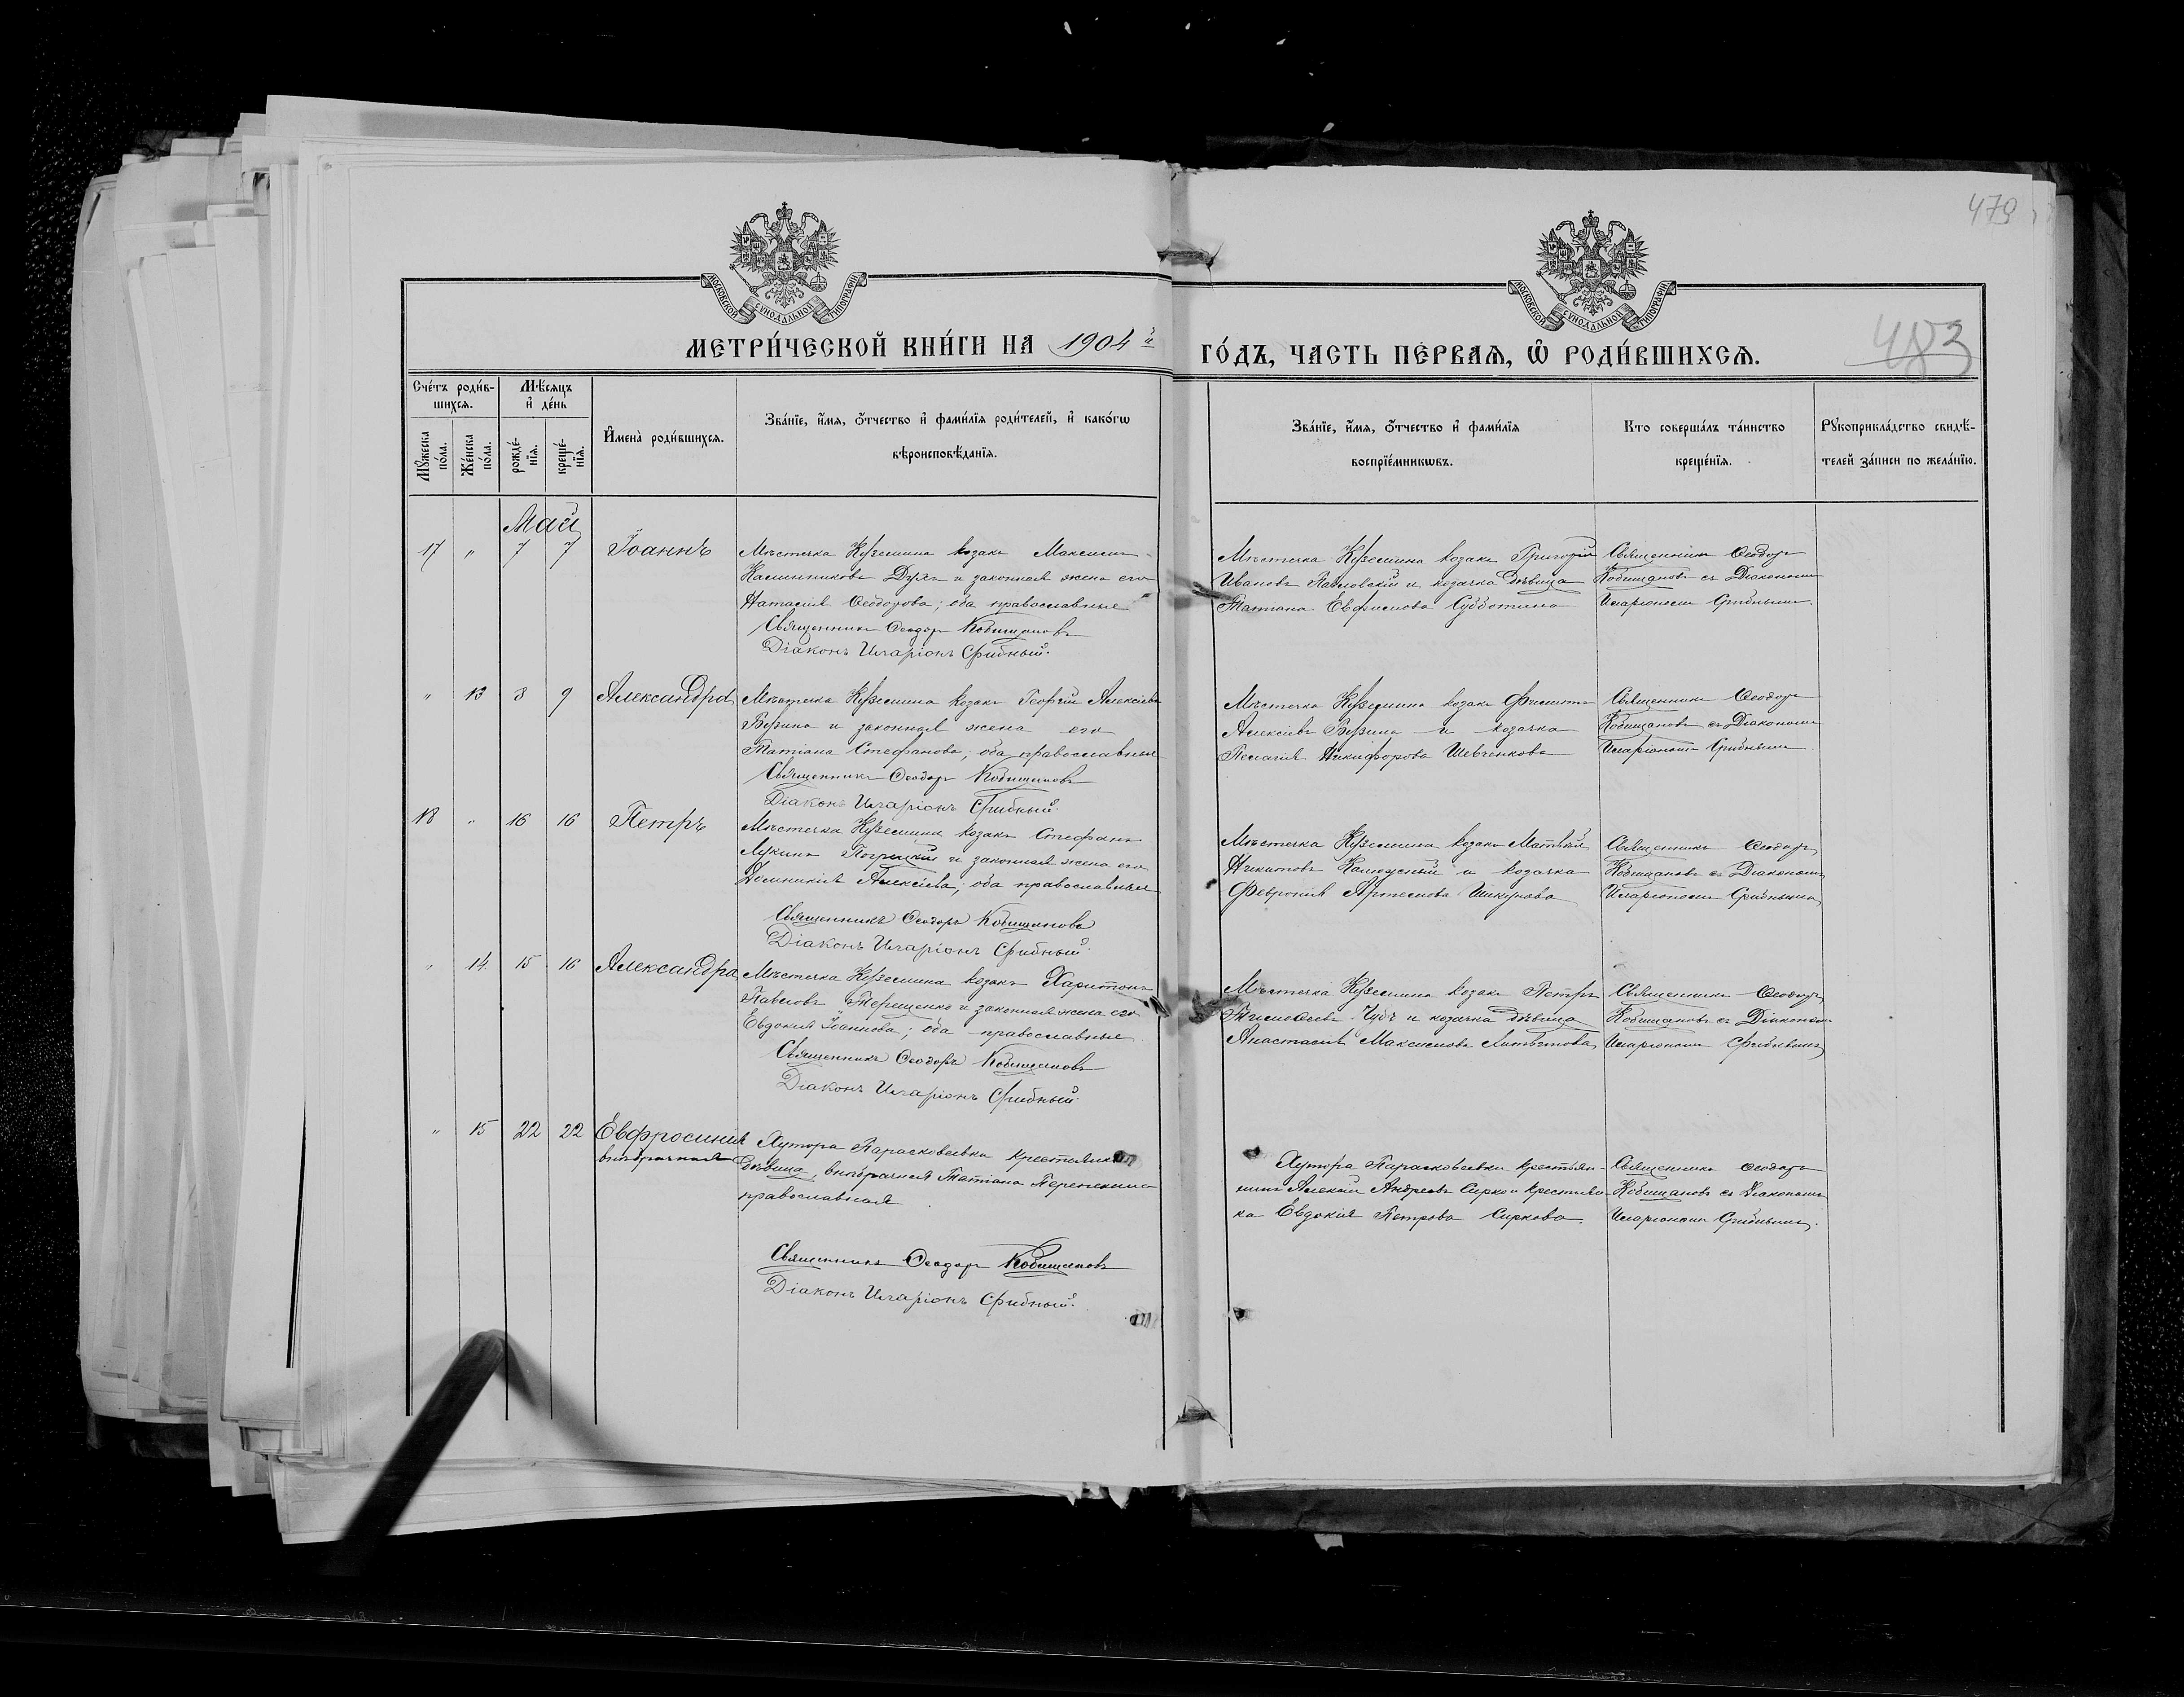 479
МОСКОВСКОЙ СѴНОДАЛЬНОЙ ТИПОГРАФІИ
МОСКОВСКОЙ СѴНОДАЛЬНОЙ ТИПОГРАФІИ
МЕТРИ́ЧЕСКОЙ КНИ́ГИ НА 1904 й
ГО́ДЪ, ЧАСТЬ ПЕ́РВАѦ, Ѡ҆ РОДИ́ВШИХСѦ.
483
Сче́тъ роди́в-
шихсѧ.
Мѣ́сѧцъ
и҆ де́нь
Мꙋ́жеска
по́ла.
Же́нска
по́ла.
рожде́-
нїѧ.
креще́-
нїѧ.
И҆мена̀ роди́вшихсѧ.
Зва́нїе, и҆́мѧ, ѻ҆́тчество и҆ фами́лїѧ роди́телей, и҆ како́гѡ
вѣроисповѣ́данїѧ.
Зва́нїе, и҆́мѧ, ѻ҆́тчество и҆ фами́лїѧ
воспрїе́мникѡвъ.
Кто соверша́лъ та́инство
креще́нїѧ.
Рꙋкоприкла́дство свидѣ́-
телей за́писи по жела́нїю.
Май
17 " 7 7 Іоаннъ
Мѣстечка Куземина козакъ Максимъ
Калинниковъ Духъ и законная жена его
Наталія Ѳеодорова; оба православные
Священникъ Ѳеодоръ Кобищановъ
Діаконъ Иларіонъ Срибный.
Мѣстечка Куземина козакъ Григорій
Ивановъ Павловскій и козачка дѣвица
Татіана Евфимова Субботина
Священникъ Ѳеодоръ
Кобищановъ съ Діакономъ
Иларіономъ Срибнымъ.
" 13 8 9 Александра
Мѣстечка Куземина козакъ Георгій Алексіевъ
и законная жена его
Татіана Стефанова; оба православные
Священникъ Ѳеодоръ Кобищановъ
Діаконъ Иларіонъ Срибный.
Мѣстечка Куземина козакъ Филиппъ
Алексіевъ и козачка
Пелагія Никифорова Шевченкова
Священникъ Ѳеодоръ
Кобищановъ съ Діакономъ
Иларіономъ Срибнымъ
18 " 16 16 Петръ
Мѣстечка Куземина козакъ Стефанъ
Лукинъ и законная жена его
Домникія Алексіева; оба православные
Священникъ Ѳеодоръ Кобищановъ
Діаконъ Иларіонъ Срибный.
Мѣстечка Куземина козакъ Матѳій
Никитовъ Калюжный и козачка
Февронія Артемова Шкурова
Священникъ Ѳеодоръ
Кобищановъ съ Діакономъ
Иларіономъ Срибнымъ
" 14 15 16 Александра
Мѣстечка Куземина козакъ Харитонъ
Павловъ Терещенко и законная жена его
Евдокія Іоаннова; оба православные
Священникъ Ѳеодоръ Кобищановъ
Діаконъ Иларіонъ Срибный.
Мѣстечка Куземина козакъ Петръ
Тимоѳеевъ Чубъ и козачка дѣвица
Анастасія Максимова
Священникъ Ѳеодоръ
Кобищановъ съ Діакономъ
Иларіономъ Срибнымъ
" 15 22 22 Евфросинія
внѣбрачная
Хутора Парасковеевки крестьянка
дѣвица, внѣбрачная Татіана
православная
Священникъ Ѳеодоръ Кобищановъ
Діаконъ Иларіонъ Срибный.
Хутора Парасковеевки крестьяни-
нъ Алексій Андреевъ Сирко и крестьян-
ка Евдокія Петрова Сиркова
Священникъ Ѳеодоръ
Кобищановъ съ Діакономъ
Иларіономъ Срибнымъ.